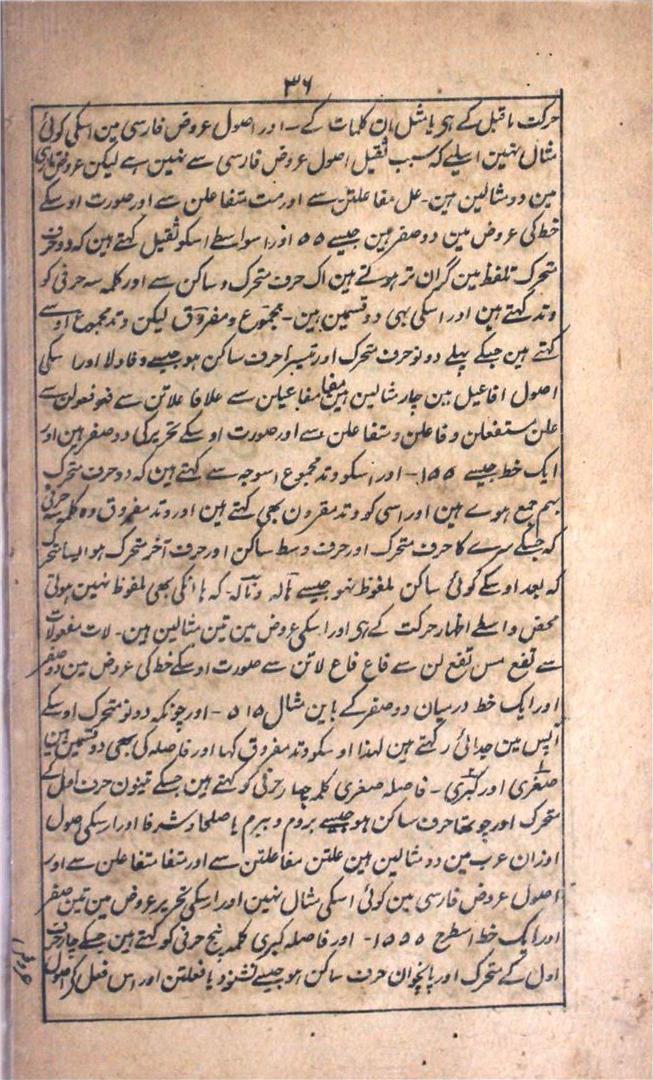 ۳۶
حرکت ماقبل کے ہی یا مثل ان کلمات کے - اور اصول عروض فارسی مین اسکی کوئی
مثال نہین اسلیے کہ سبب ثقیل اصول عروض فارسی سے نہین ہے لیکن عروض تازی
مین دو مثالین ہین - عل مفاعلتن سے اور مت متفاعلن سے اور صورت اوسکے
خط کی عروض مین دو صفر ہین جیسے ٥٥ اور اسواسطے اسکو ثقیل کہتے ہین کہ دو حرف
متحرک تلفظ مین گران تر ہوتے ہین اک حرف متحرک و ساکن سے اور کلمہ سہ حرفی کو
وتد کہتے ہین اور اسکی بھی دو قسمین ہین - مجموع و مفروق لیکن وتد مجموع اوسے
کہتے ہین جسکے پہلے دونو حرف متحرک اور تیسرا حرف ساکن ہو جیسے وفا دلا اور اسکی
اصول افاعیل مین چار مثالین ہین مفا مفاعیلن سے علا فاعلاتن سے فعو فعولن سے
علن مستفعلن و فاعلن و متفاعلن سے اور صورت اوسکے تحریر کی دو صفر ہین اور
ایک خط جیسے ١٥٥ - اور اسکو وتد مجموع اسوجہ سے کہتے ہین کہ دو حرف متحرک
بہم جمع ہوے ہین اور اسی کو وتد مقرون بھی کہتے ہین اور وتد مفروق وہ کلمہ سہ حرفی
کہ جسکے سرے کا حرف متحرک اور حرف وسط ساکن اور حرف آخر متحرک ہو ایسا متحرک
کہ بعد اوسکے کوئی ساکن ملفوظ نہو جیسے ہالہ و نالہ - کہ ہا انکی بھی ملفوظ نہین ہوتی
محض واسطے اظہار حرکت کے ہی اور اسکی عروض مین تین مثالین ہین - لات مفعولات
سے تفع مس تفع لن سے فاع فاع لاتن سے صورت اوسکے خط کی عروض مین دو صفر
اور ایک خط درمیان دو صفر کے باین مثال ٥١٥ - اور چونکہ دونو متحرک اوسکے
آپس مین جدائی رکھتے ہین لہذا اوسکو وتد مفروق کہا اور فاصلہ کی بھی دو قسمین ہین
صغری اور کبری - فاصلہ صغری کلمہ چہار حرفی کو کہتے ہین جسکے تینون حرف اول کے
متحرک اور چوتھا حرف ساکن ہو جیسے بروم و ببرم یا صلحا و شرفا اور اسکی اصول
اوزان عرب مین دو مثالین ہین علتن مفاعلتن سے اور متفا متفاعلن سے اور
اصول عروض فارسی مین کوئی اسکی مثال نہین اور اسکی تحریر عروض مین تین صفر
اور ایک خط اسطرح ١٥٥٥ - اور فاصلہ کبری کلمہ پنج حرفی کو کہتے ہین جسکے چار حرف
اول کے متحرک اور پانچوان حرف ساکن ہو جیسے یا فعلتن اور اس فعل کی اصول